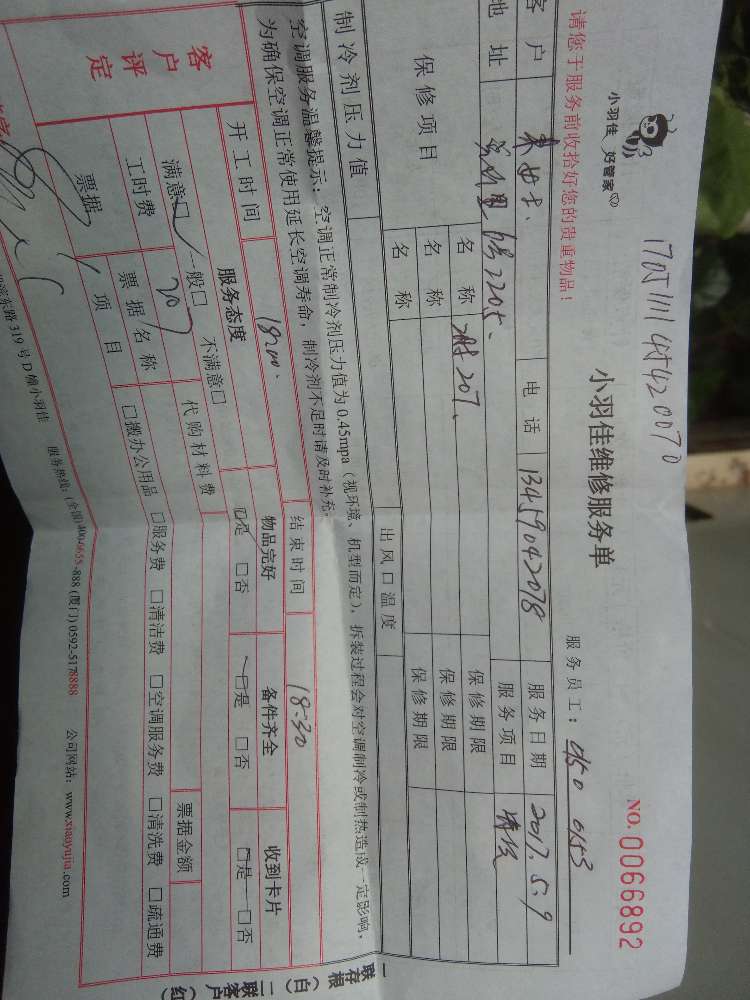 小羽佳 好管家
1705111454420070
小羽佳维修服务单
NO.0066892
请您于服务前收拾好您的贵重物品！
服务员工：0150 0153
客户 电话 13459042078 服务日期 2017.5.9
地址 2205 服务项目
保修项目 名称 207 保修期限
名称 保修期限
名称 保修期限
制冷剂压力值 出风口温度
空调服务温馨提示：空调正常制冷剂压力值为0.45mpa（视环境、机型而定），拆装过程会对空调制冷或制热造成一定影响，
为确保空调正常使用延长空调寿命，制冷剂不足时请及时补充。
客户评定
开工时间 18:00 结束时间 18:30
服务态度 物品完好 备件齐全 收到卡片
满意□ 一般□ 不满意□ □是 □否 □是 □否 □是 □否
工时费 207 代购材料费
票据 票据名称 票据金额
项目 □搬办公用品 □服务费 □清洁费 □空调服务费 □清洗费 □疏通费
东路319号D幢小羽佳 服务热线：(全国)400-6655-888 (厦门) 0592-5178888 公司网站：www.xiaoyujia.com
一联存根（白）二联客户（红）